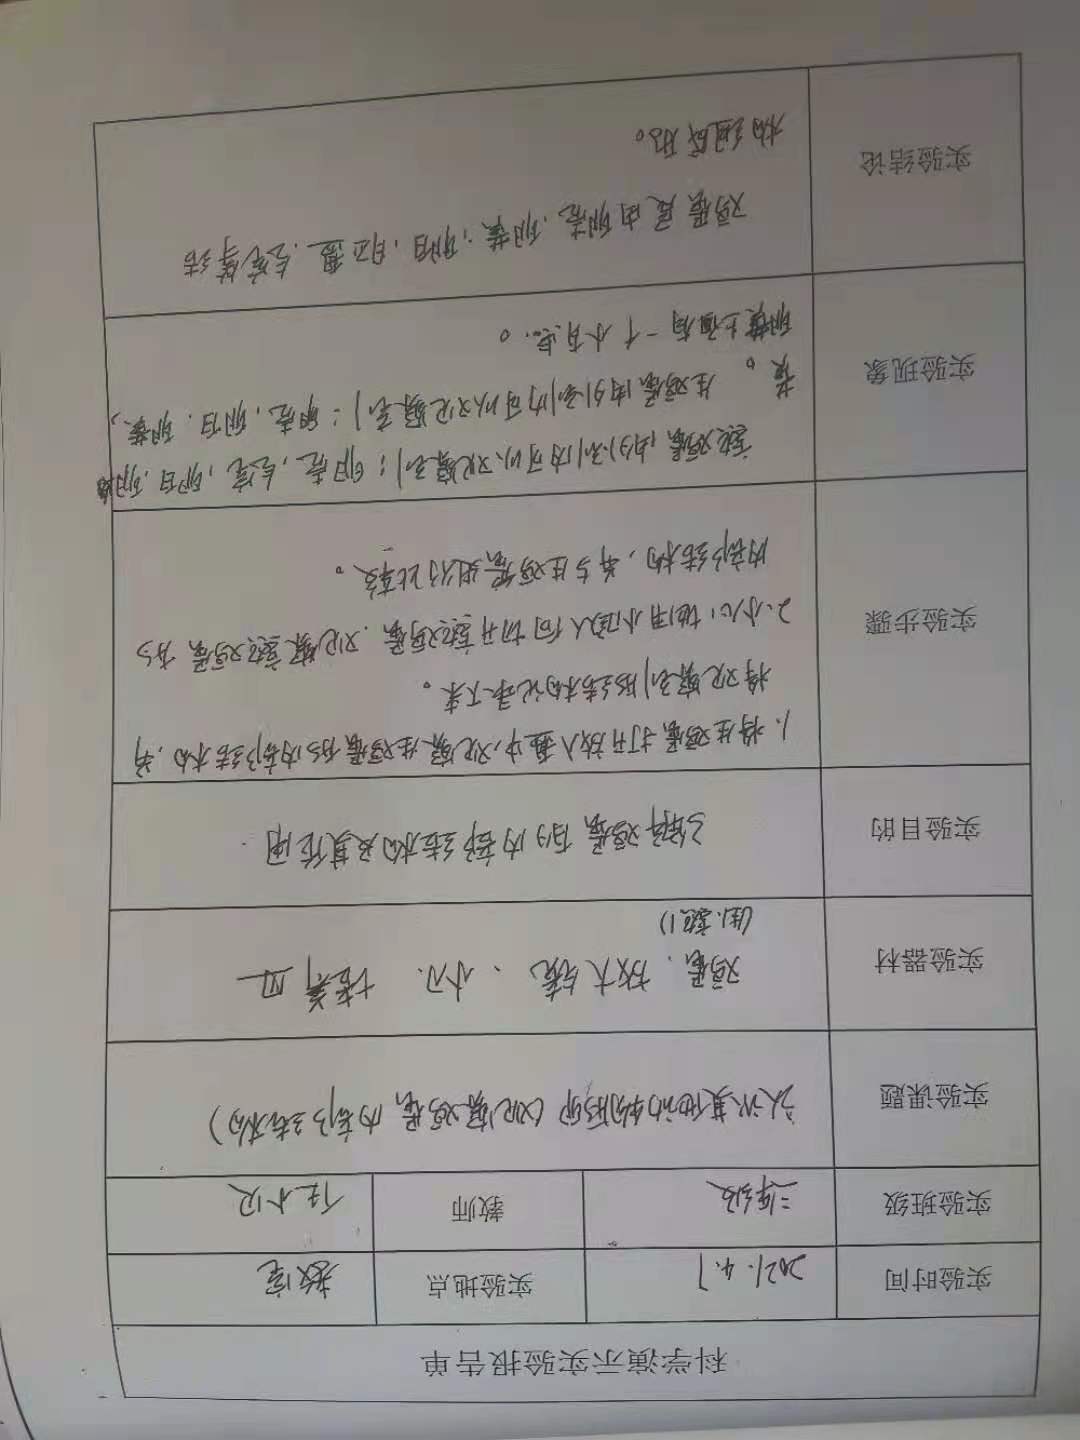 科学演示实验报告单
实验时间 2021.4.7 实验地点 教室
实验班级 三年级 教师 任小贝
实验课题 认识其他动物的卵（观察鸡蛋内部结构）
实验器材 鸡蛋、放大镜、小刀、培养皿
（生、熟）
实验目的 了解鸡蛋的内部结构及其作用
实验步骤 1、将生鸡蛋打开放入皿中，观察生鸡蛋的内部结构，并
将观察到的结构记录下来。
2、小心地用小刀从 切开熟鸡蛋，观察熟鸡蛋的
内部结构，并与生鸡蛋进行比较。
实验现象 熟鸡蛋由外到内可以观察到：卵壳，气室，卵白，卵黄
生鸡蛋由外到内可以观察到：卵壳，卵白，卵黄，
卵黄上面有一个小白点。
实验结论 鸡蛋是由卵壳、卵黄，卵白， 气室等结
构组成的。